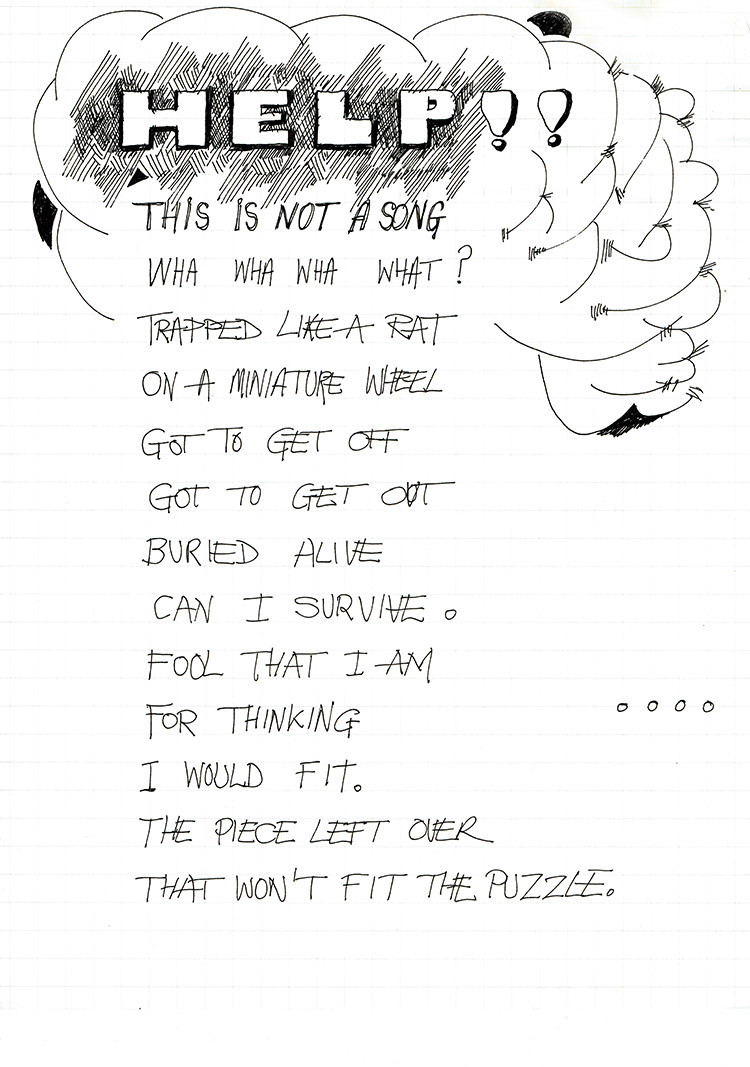 HELP!!
THIS IS NOT A SONG
WHA WHA WHA WHAT?
TRAPPED LIKE A RAT
ON A MINIATURE WHEEL
GOT TO GET OFF
GOT TO GET OUT
BURIED ALIVE
CAN I SURVIVE.
FOOL THAT I AM
FOR THINKING ....
I WOULD FIT.
THE PIECE LEFT OVER
THAT WON'T FIT THE PUZZLE.